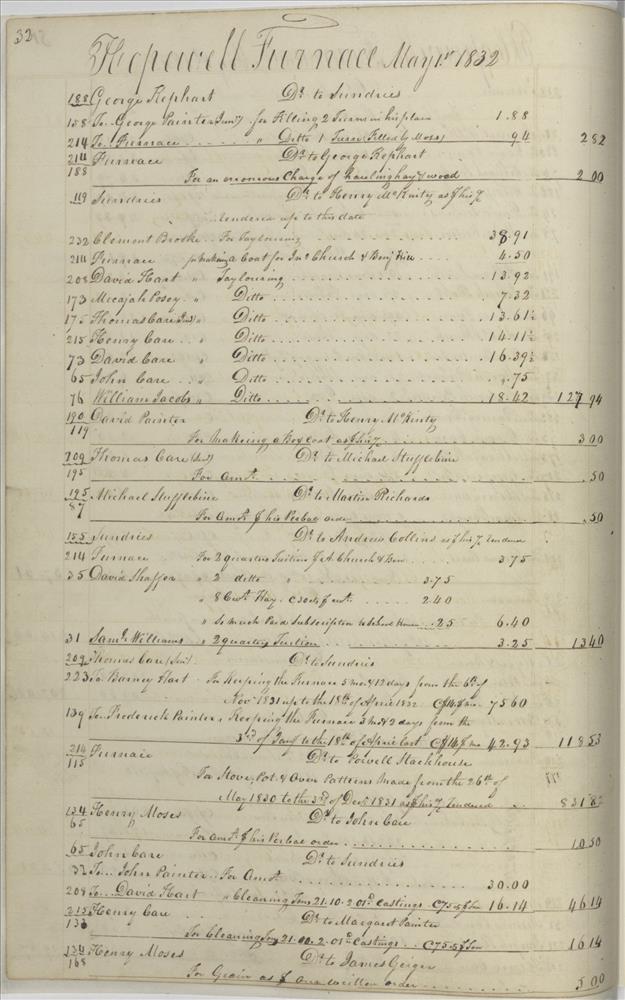 32
Hopewell Furnace May 1st 1832
188 George Hephart Dr. to Sundries
158 To George Painter Junr for Filling 2 Turns in his place 1.88
214 To Furnace " Ditto 1 Turn (Filled by Moss) 94 2 82
214 Furnace Dr. to George Hephart
188 For an erroneous Charge of hauling hay & wood 2 00
119 Sundries Dr. to Henry McKinty as 
rendered up to this date
232 Clement Brooke For Taylouring 38.91
214 Furnace for making a Coat for Jno Church & Benj Hill 4.50
208 David Hart " Taylouring 13.92
173 Micajah Posey " Ditto 7.32
175 Thomas Care (Jur) " Ditto 13.61½
215 Henry Care " Ditto 14.11½
73 David Care " Ditto 16.39½
65 John Care " Ditto .75
76 William Jacobs " Ditto 18.42 127 94
190 David Painter Dr. to Henry McKinty
119 For Making a Box Coat as 3 00
209 Thomas Care (Senr) Dr. to Michael Stufflebine
195 For Amt. .50
195 Michael Stufflebine Dr. to Martin Richards
87 For Amt. his Verbal order .50
155 Sundries Dr. to Andrew Collins as rendered
214 Furnace For 2 quarters Tuition A. Church & 3.75
35 David Shaffer " 2 ditto " 3.75
" 8 Cwt. Hay C 30cts cwt. 2.40
" So much Paid Subscription to School House .25 6.40
31 Saml. Williams " 2 quarters Tuition 3.25 13 40
209 Thomas Care (Senr) Dr. to Sundries
223 To Barney Hart For Keeping the Furnace 5 mo & 12 days from the 6th of
Novr 1831 up to the 18th of April 1832 C $14 mo 75 60
139 To Frederick Painter " Keeping the Furnace 3 mo & 2 days from the
3rd of Jany to the 18th of April last C $14 mo 42.93 118 53
214 Furnace Dr. to Powell Stackhouse
115 For Stove, Pot & Oven Patterns made from the 26th of
May 1830 to the 3rd of Decr 1831 as rendered 831 87
134 Henry Moses Dr. to John Care
65 For amt. his Verbal order 10 50
65 John Care Dr. to Sundries
To John Painter For Amt. 30.00
208 To David Hart " Cleaning Tons 21.10.2.01 Castings C 75 Ton 16.14 46 14
215 Henry Care Dr. to Margaret Painter
133 For Cleaning Tons 21.10.2.01 Castings C 75 Ton 16 14
134 Henry Moses Dr. to James Geiger
168 For Grain as written order 5 00